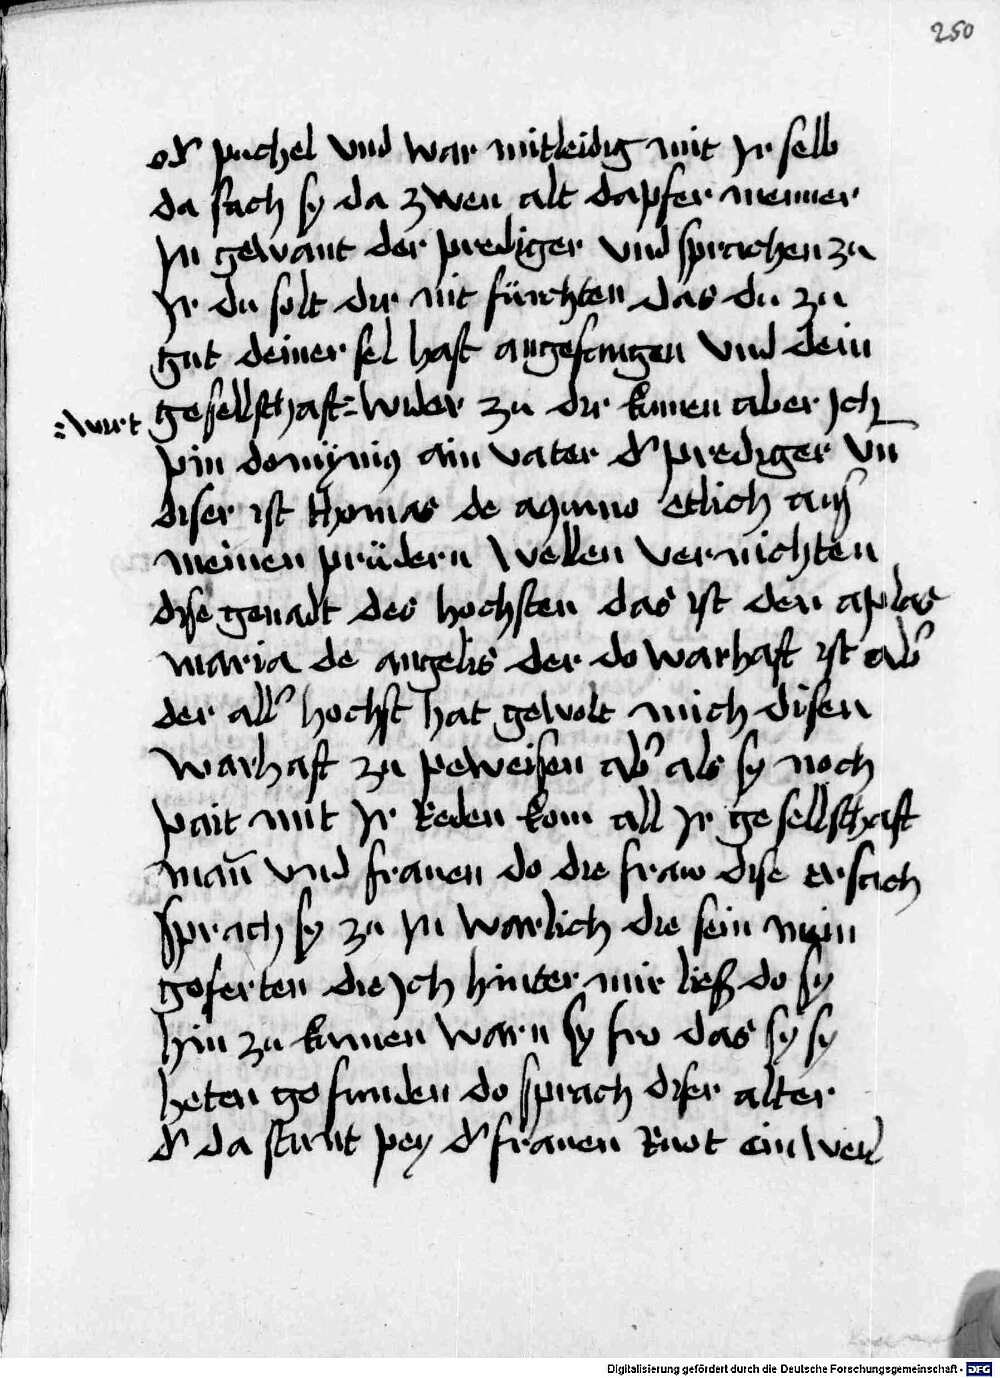 250
od' puchel vnd war mitleidig mit Jr selb
da sach sy da zwen alt dapfer menner
Jn gewant der prediger vnd sprachen zu
Jr du solt dir nit fürchten das du zu
gut deiner sel hast angefangen vnd dein
gesellschaft = wider zu dir kumen aber Jch
= wirt
pin dominius ain vater d' prediger vn̄
diser ist thomas de aquino etlich aus
meinen prüdern wellen vernichten
dise genadt des hochsten das ist den aplas
maria de angelis der do warhaft ist ab'
der all' hochst hat gewolt mich disen
warhaft zu peweisen ab' als sy noch
pait mit Jr Reden kom all Jr gesellschaft
man̄ vnd frauen do die fraw dise ersach
sprach sy zu Jn warlich die sein mein
geferten die Jch hinter mir ließ do sy
hin zu kumen warn sy fro das sy sy
heten gefunden do sprach diser alter
d' da stunt pey d' frauen Ruot ein weil
Digitalisierung gefördert durch die Deutsche Forschungsgemeinschaft - DFG